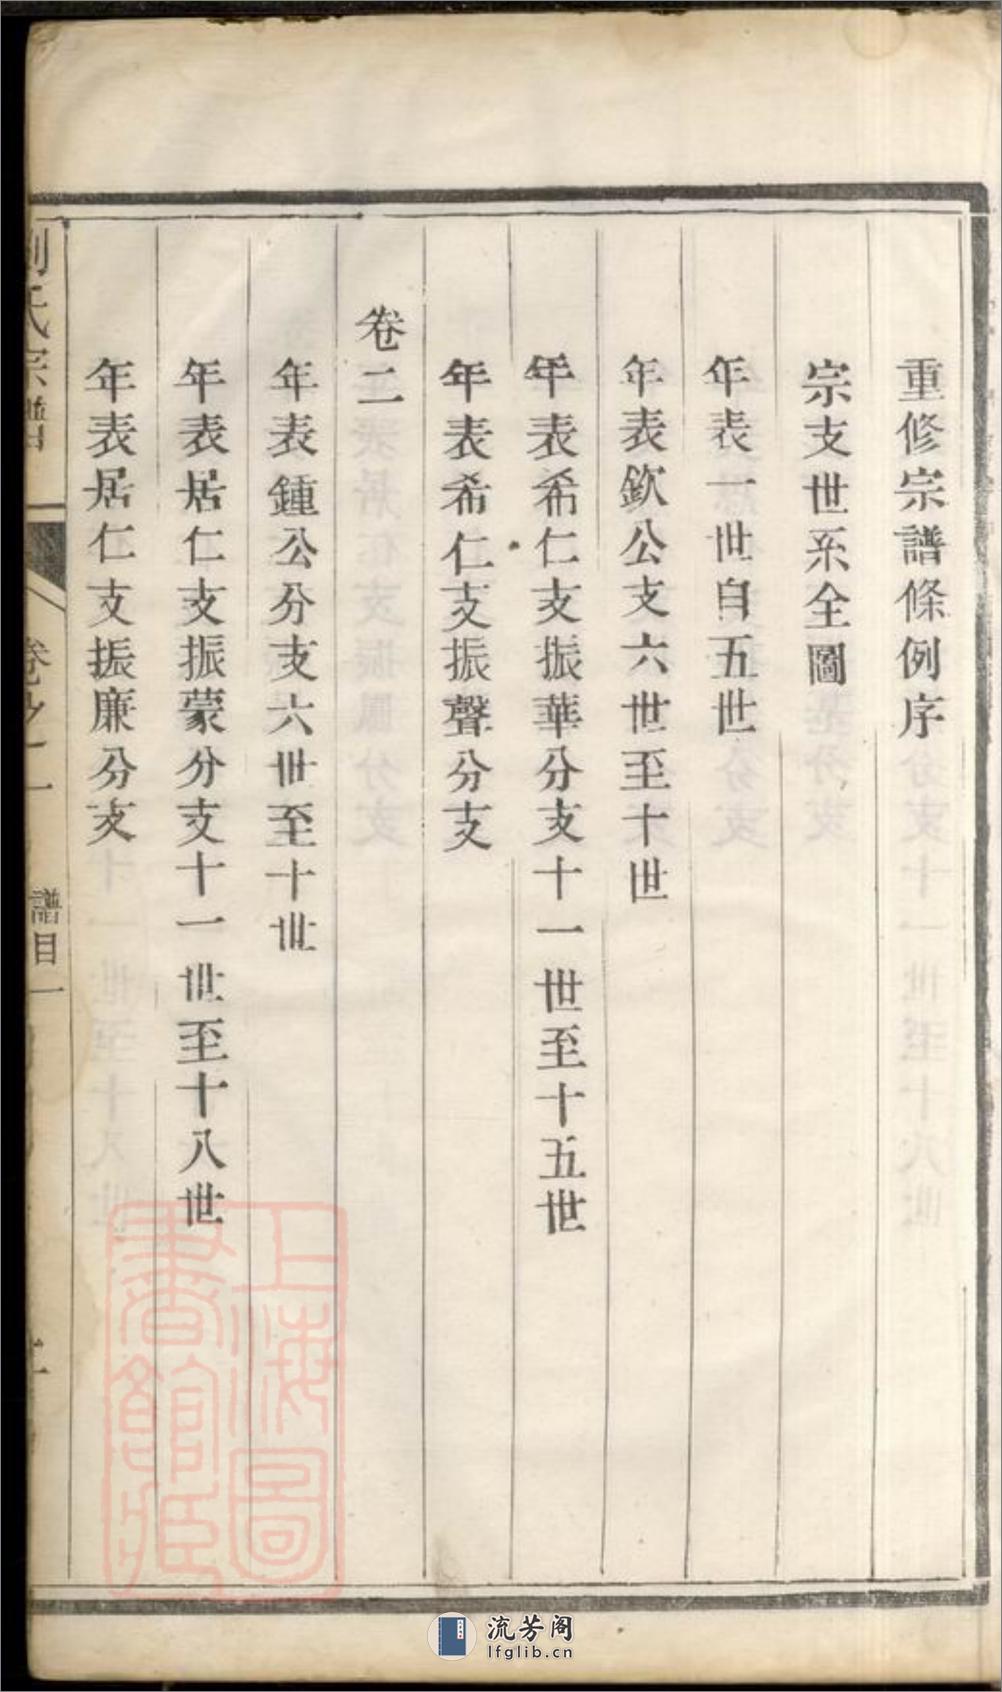 重修宗譜條例序
宗支世系全圖
年表一世自五世
年表欽公支六世至十世
年表希仁支振華分支十一世至十五世
年表希仁支振聲分支
卷二
年表鍾公分支六世至十世
年表居仁支振蒙分支十一世至十八世
年表居仁支振廉分支
劉氏宗譜
卷之一
譜目一
二
上海圖書館藏
流芳阁
lfglib.cn